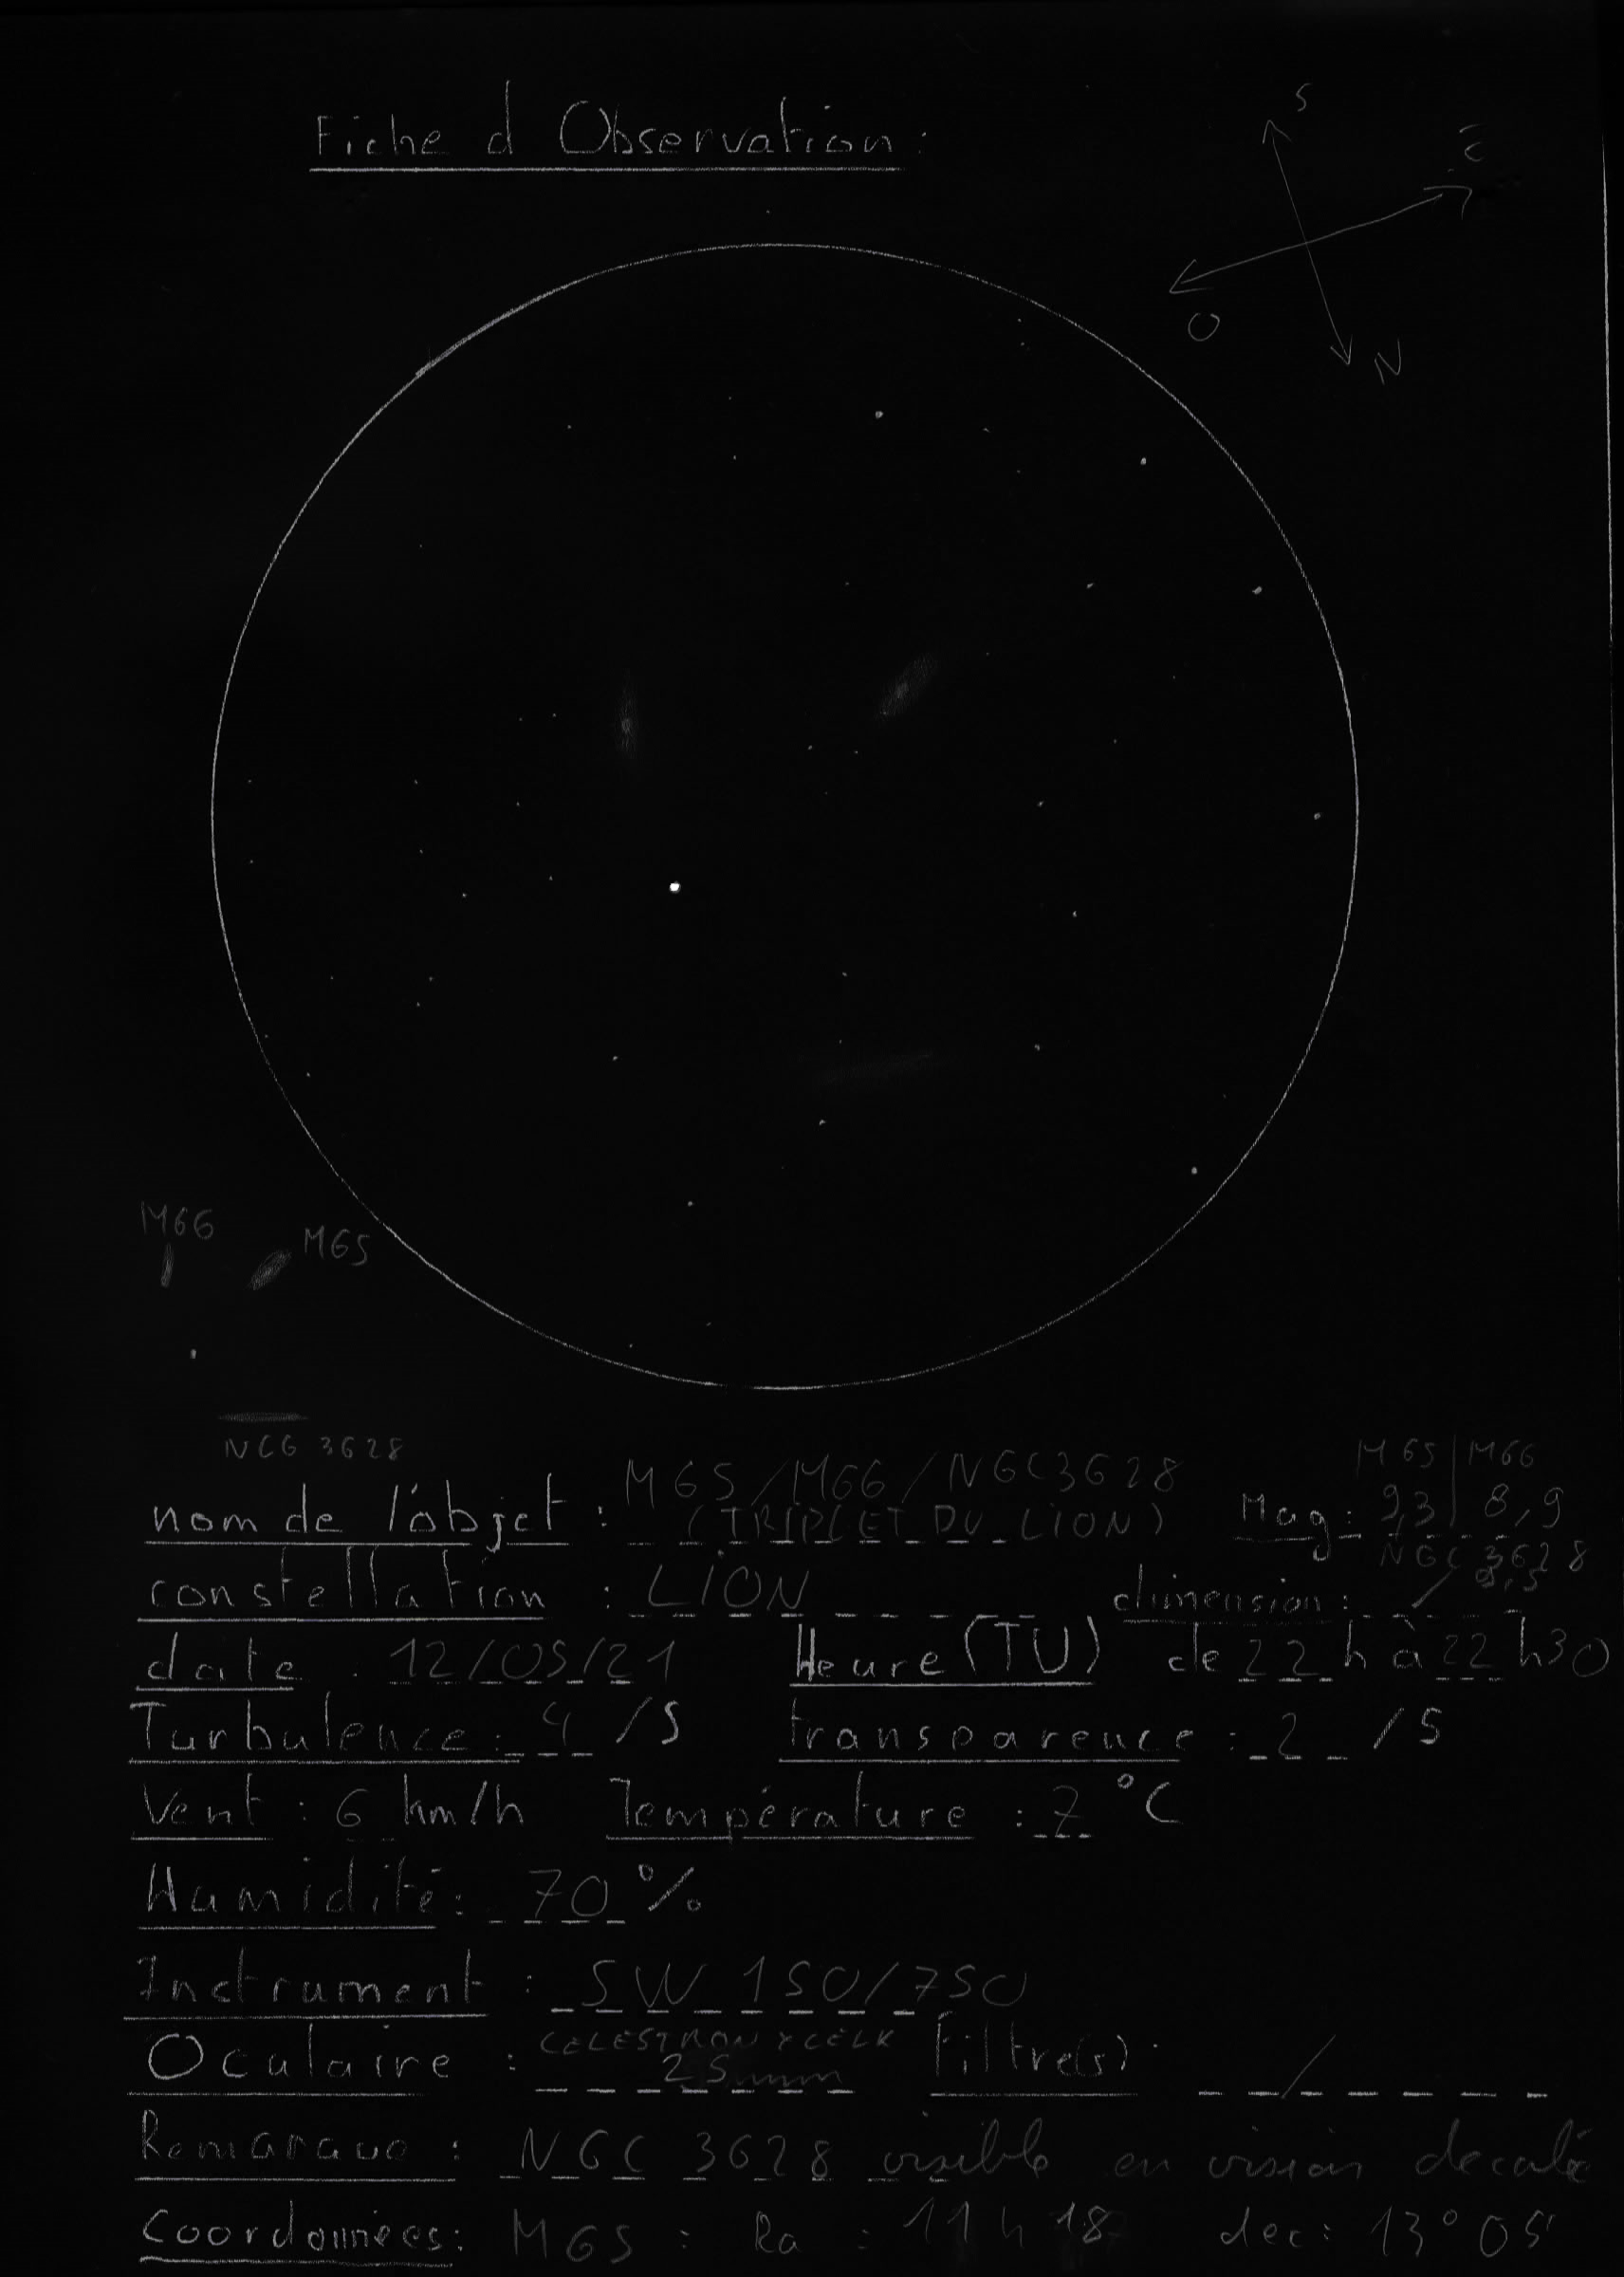 Fiche d Observation :
S
E
O
N
M66
M65
NGC 3628
M65 | M66
nom de l'objet : M65/M66/NGC3628 Mag : 9,3 | 8,9
(TRIPLET DU LION)
NGC 3628
9,5
constellation : LION dimension : /
date : 12/05/21 Heure (TU) de 22 h à 22 h30
Turbulence : 4 /5 transparence : 2 /5
Vent : 6 km/h Température : 7 °C
Humidité : 70 %
Instrument : SW 150/750
Oculaire : CELESTRON XCELX Filtre(s) : /
25mm
Remarque : NGC 3628 visible en vision decalé
Coordonnées : M65 : Ra : 11 h 18 dec : 13° 05'